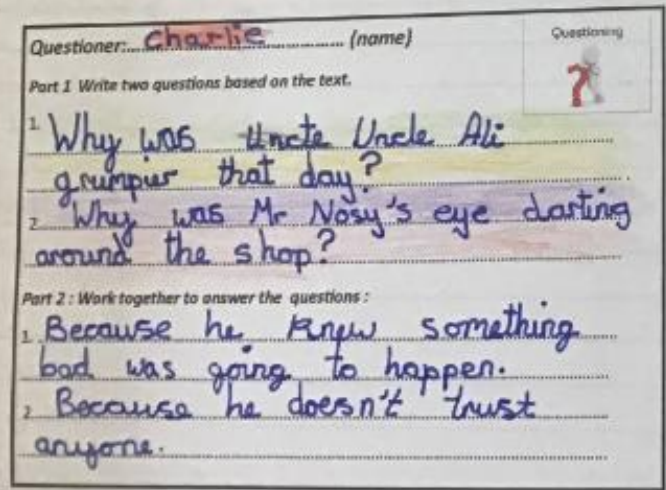 Questioning
Questioner:.... Charlie .... (name)
Part 1 Write two questions based on the text.
1. Why was Uncle Ali
grumpur that day?
2. Why was Mr Nosy's eye darting
around the shop?
Part 2 : Work together to answer the questions :
1. Because he knew something
bad was going to happen.
2. Because he doesn't trust
anyone.